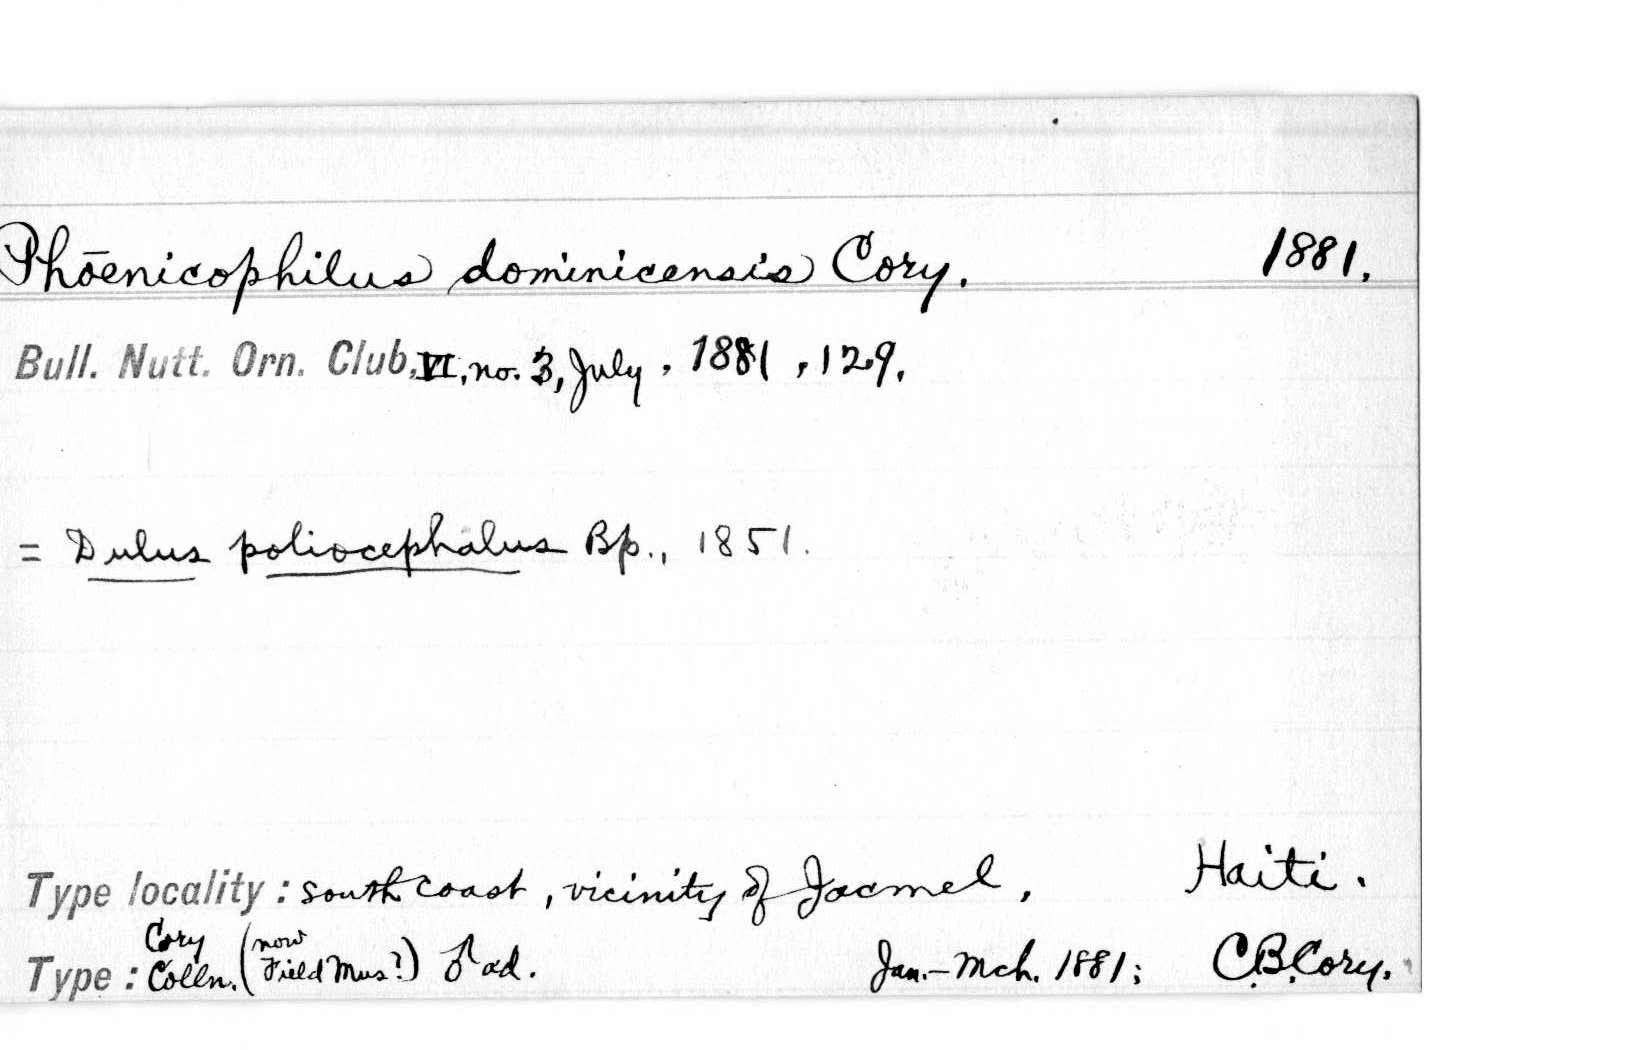 Phōenicophilus dominicensis Cory. 1881.
Bull. Nutt. Orn. Club, VI, no. 3, July, 1881, 129.
= Dulus poliocephalus Bp., 1851.
Type locality: south coast, vicinity of Jacmel, Haiti.
Type: Cory Colln. (now Field Mus?) ♂ ad. Jan.-Mch. 1881; C.B.Cory.